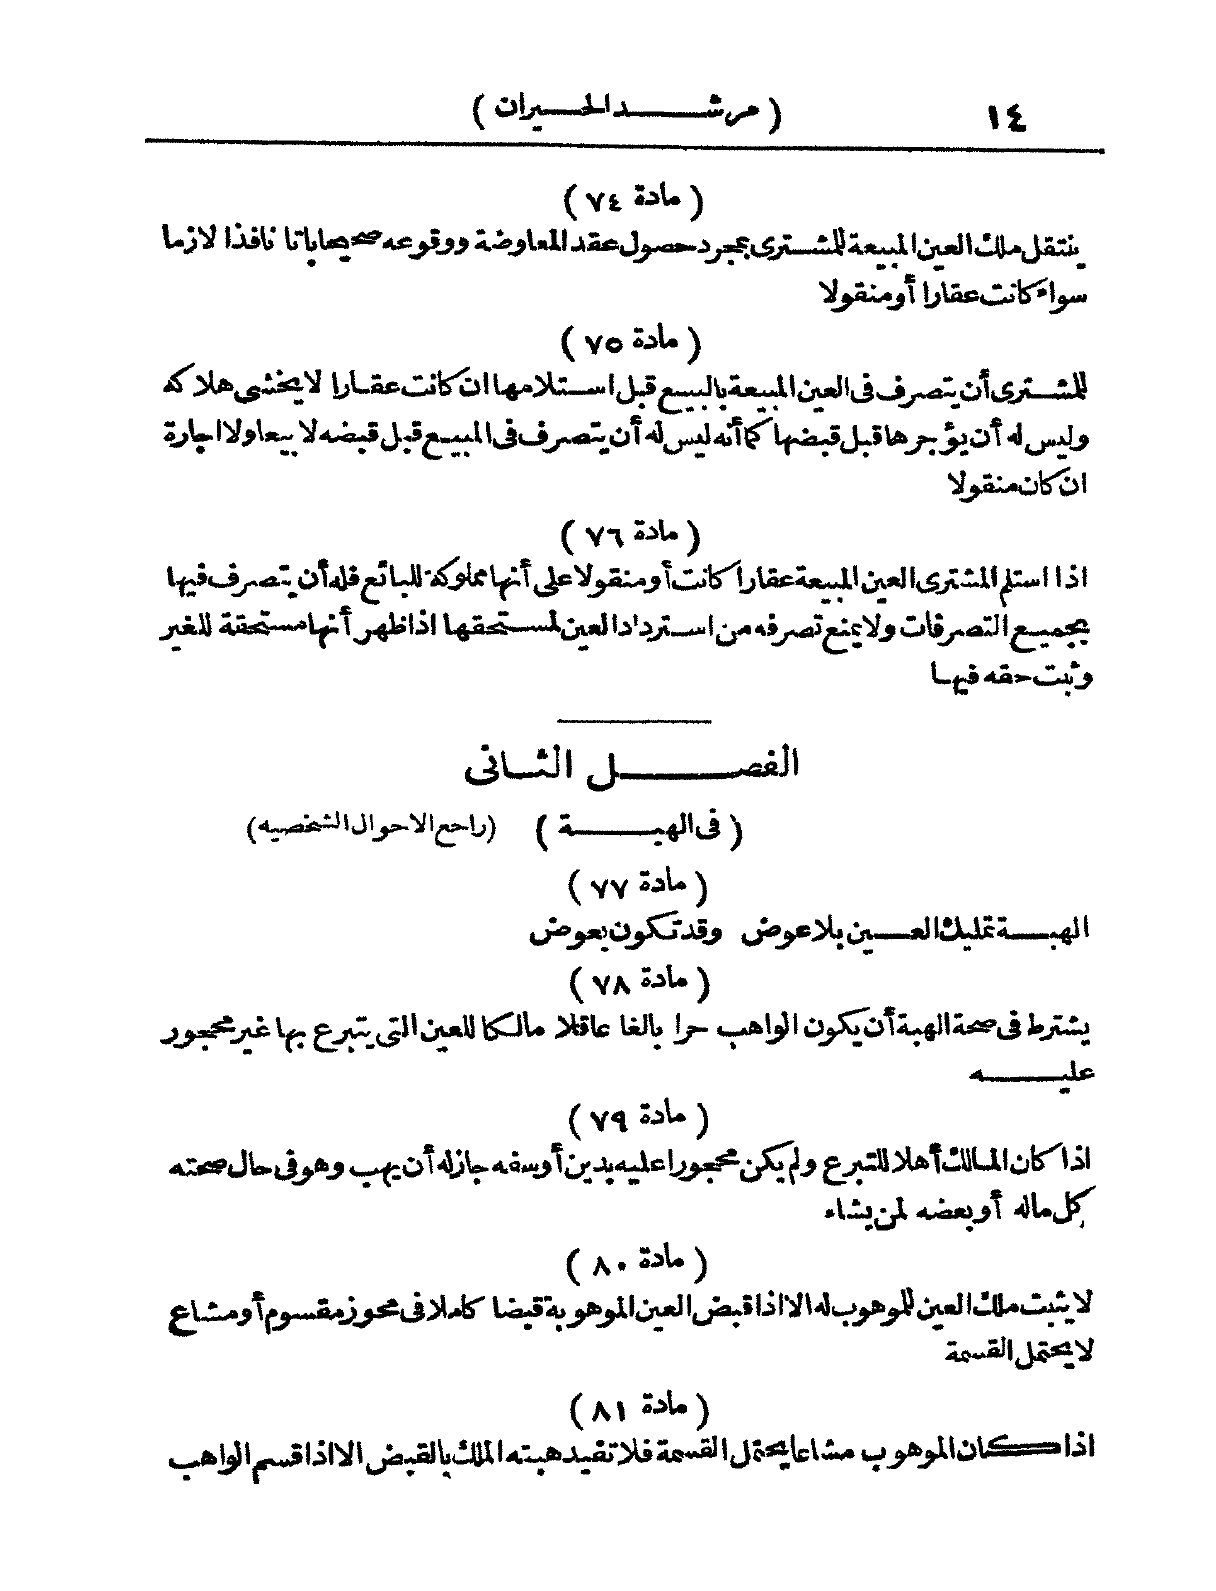 ١٤
( مرشد الحيران )
( مادة ٧٤ )
ينتقل ملك العين المبيعة للمشترى بمجرد حصول عقد المعاوضة ووقوعه صحيحا باتا نافذا لازما
سواء كانت عقارا أو منقولا
( مادة ٧٥ )
للمشترى أن يتصرف فى العين المبيعة بالبيع قبل استلامها ان كانت عقارا لا يخشى هلاكه
وليس له أن يؤجرها قبل قبضها كما أنه ليس له أن يتصرف فى المبيع قبل قبضه لا بيعا ولا اجارة
ان كان منقولا
( مادة ٧٦ )
اذا استلم المشترى العين المبيعة عقارا كانت أو منقولا على أنها مملوكة للبائع فله أن يتصرف فيها
بجميع التصرفات ولا يمنع تصرفه من استرداد العين لمستحقها اذا ظهر أنها مستحقة للغير
وثبت حقه فيها
الفصل الثانى
( فى الهبة ) (راجع الاحوال الشخصيه)
( مادة ٧٧ )
الهبة تمليك العين بلا عوض وقد تكون بعوض
( مادة ٧٨ )
يشترط فى صحة الهبة أن يكون الواهب حرا بالغا عاقلا مالكا للعين التى يتبرع بها غير محجور
عليه
( مادة ٧٩ )
اذا كان المالك أهلا للتبرع ولم يكن محجورا عليه بدين أو سفه جاز له أن يهب وهو فى حال صحته
كل ماله أو بعضه لمن يشاء
( مادة ٨٠ )
لا يثبت ملك العين للموهوب له الا اذا قبض العين الموهوبة قبضا كاملا فى محوز مقسوم أو مشاع
لا يحتمل القسمة
( مادة ٨١ )
اذا كان الموهوب مشاعا يحتمل القسمة فلا تفيد هبته الملك بالقبض الا اذا قسم الواهب